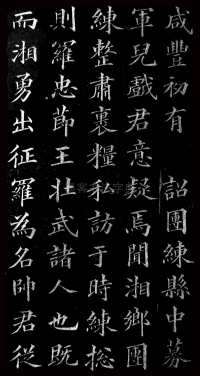 咸豐初有 詔團練縣中募
軍兒戲君意疑焉聞湘鄉團
練整肅裹糧私訪于時練揔
則羅忠節王壮武諸人也既
而湘勇出征羅為名帥君從